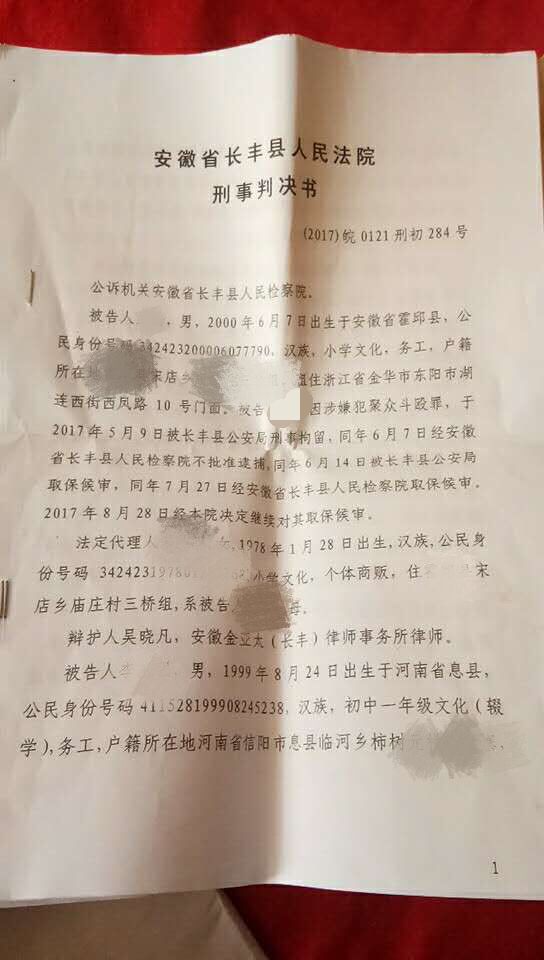 安徽省长丰县人民法院
刑事判决书
(2017)皖0121刑初284号
公诉机关安徽省长丰县人民检察院。
被告人 ,男,2000年6月7日出生于安徽省霍邱县,公
民身份号码342423200006077790,汉族,小学文化,务工,户籍
所在地 宋店乡 住浙江省金华市东阳市湖
连西街西凤路10号门面。被告 因涉嫌犯聚众斗殴罪,于
2017年5月9日被长丰县公安局刑事拘留,同年6月7日经安徽
省长丰县人民检察院不批准逮捕,同年6月14日被长丰县公安局
取保候审,同年7月27日经安徽省长丰县人民检察院取保候审。
2017年8月28日经本院决定继续对其取保候审。
法定代理人 女,1978年1月28日出生,汉族,公民身
份号码 小学文化,个体商贩,住 宋
店乡庙庄村三桥组,系被告 母。
辩护人吴晓凡,安徽金亚太(长丰)律师事务所律师。
被告人 ,男,1999年8月24日出生于河南省息县,
公民身份号码411528199908245238,汉族,初中一年级文化(辍
学),务工,户籍所在地河南省信阳市息县临河乡柿树
1